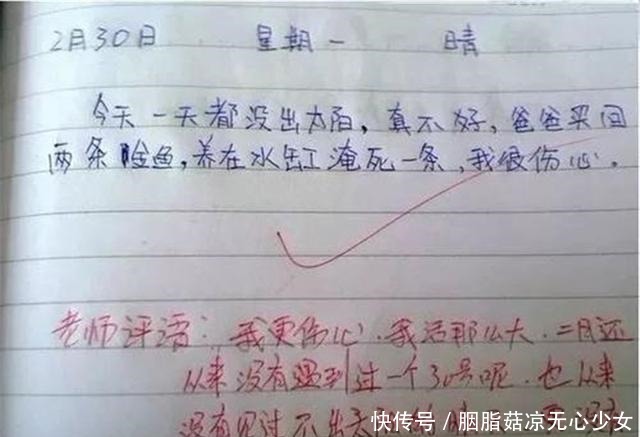 2月30日 星期一 晴
今天一天都没出太阳，真不好，爸爸买回
两条金鱼，养在水缸淹死一条，我很伤心。
老师评语：我更伤心．我活那么大．二月还
从来没有遇到过一个30号呢．也从来
没有见过不出太阳
快传号／胭脂菇凉无心少女